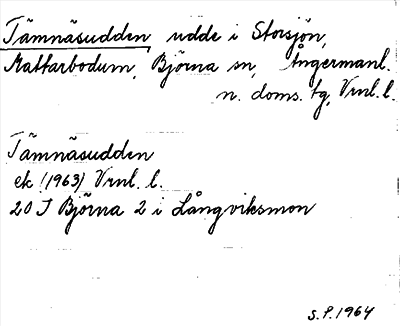 Tämnäsudden udde i Storsjön,
Mattarbodum, Björna sn, Ångermanl.
n. doms. tg, Vrnl. l.
Tämnäsudden
ek (1963) Vrnl. l.
20 J Björna 2 i Långviksmon
S.P. 1964